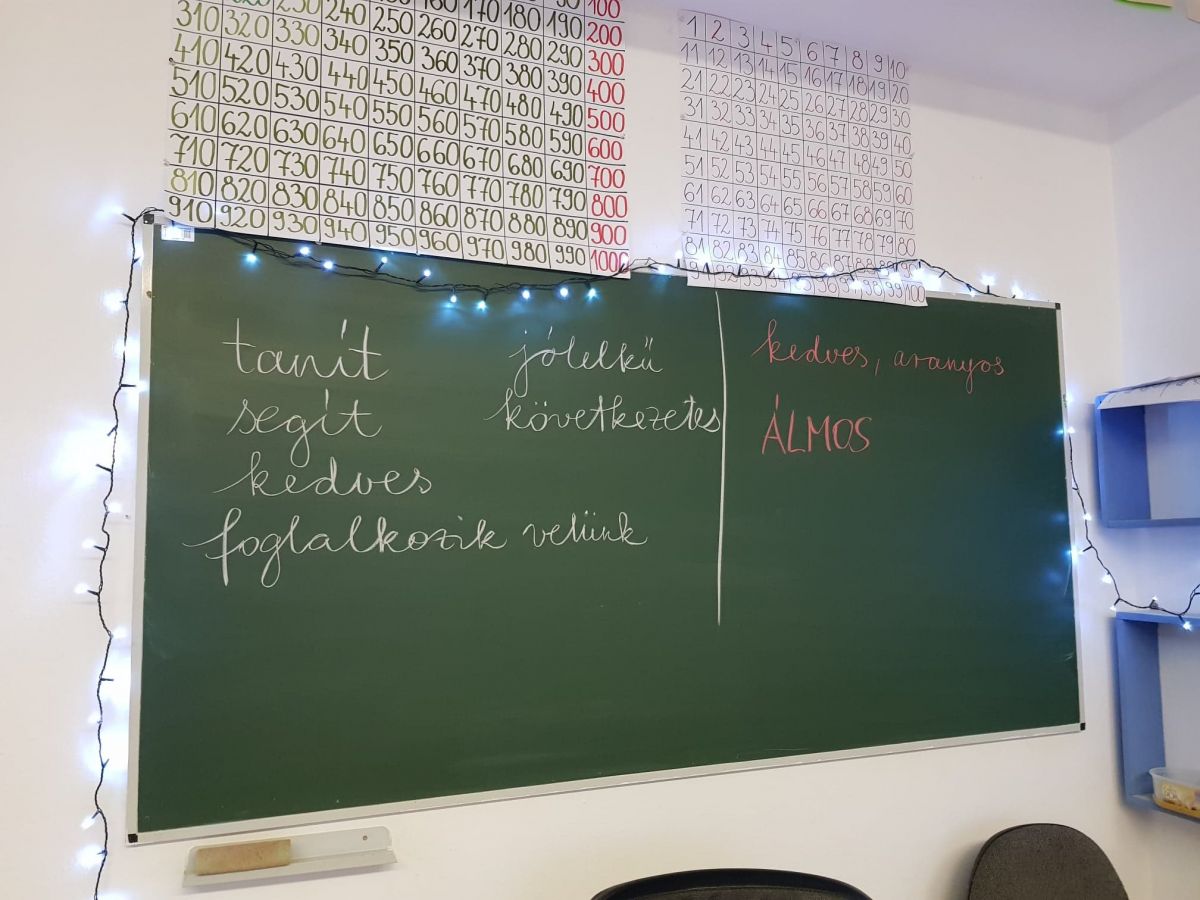 90 100
160 170 180 190 200
220 230 240 250 260 270 280 290 300
310 320 330 340 350 360 370 380 390 400
410 420 430 440 450 460 470 480 490 500
510 520 530 540 550 560 570 580 590 600
610 620 630 640 650 660 670 680 690 700
710 720 730 740 750 760 770 780 790 800
810 820 830 840 850 860 870 880 890 900
910 920 930 940 950 960 970 980 990 1000
1 2 3 4 5 6 7 8 9 10
11 12 13 14 15 16 17 18 19 20
21 22 23 24 25 26 27 28 29 30
31 32 33 34 35 36 37 38 39 40
41 42 43 44 45 46 47 48 49 50
51 52 53 54 55 56 57 58 59 60
61 62 63 64 65 66 67 68 69 70
71 72 73 74 75 76 77 78 79 80
81 82 83 84 85 86 87 88 89 90
91 92 93 94 95 96 97 98 99 100
tanít
segít
kedves
foglalkozik velünk
jólelkű
következetes
kedves, aranyos
ÁLMOS